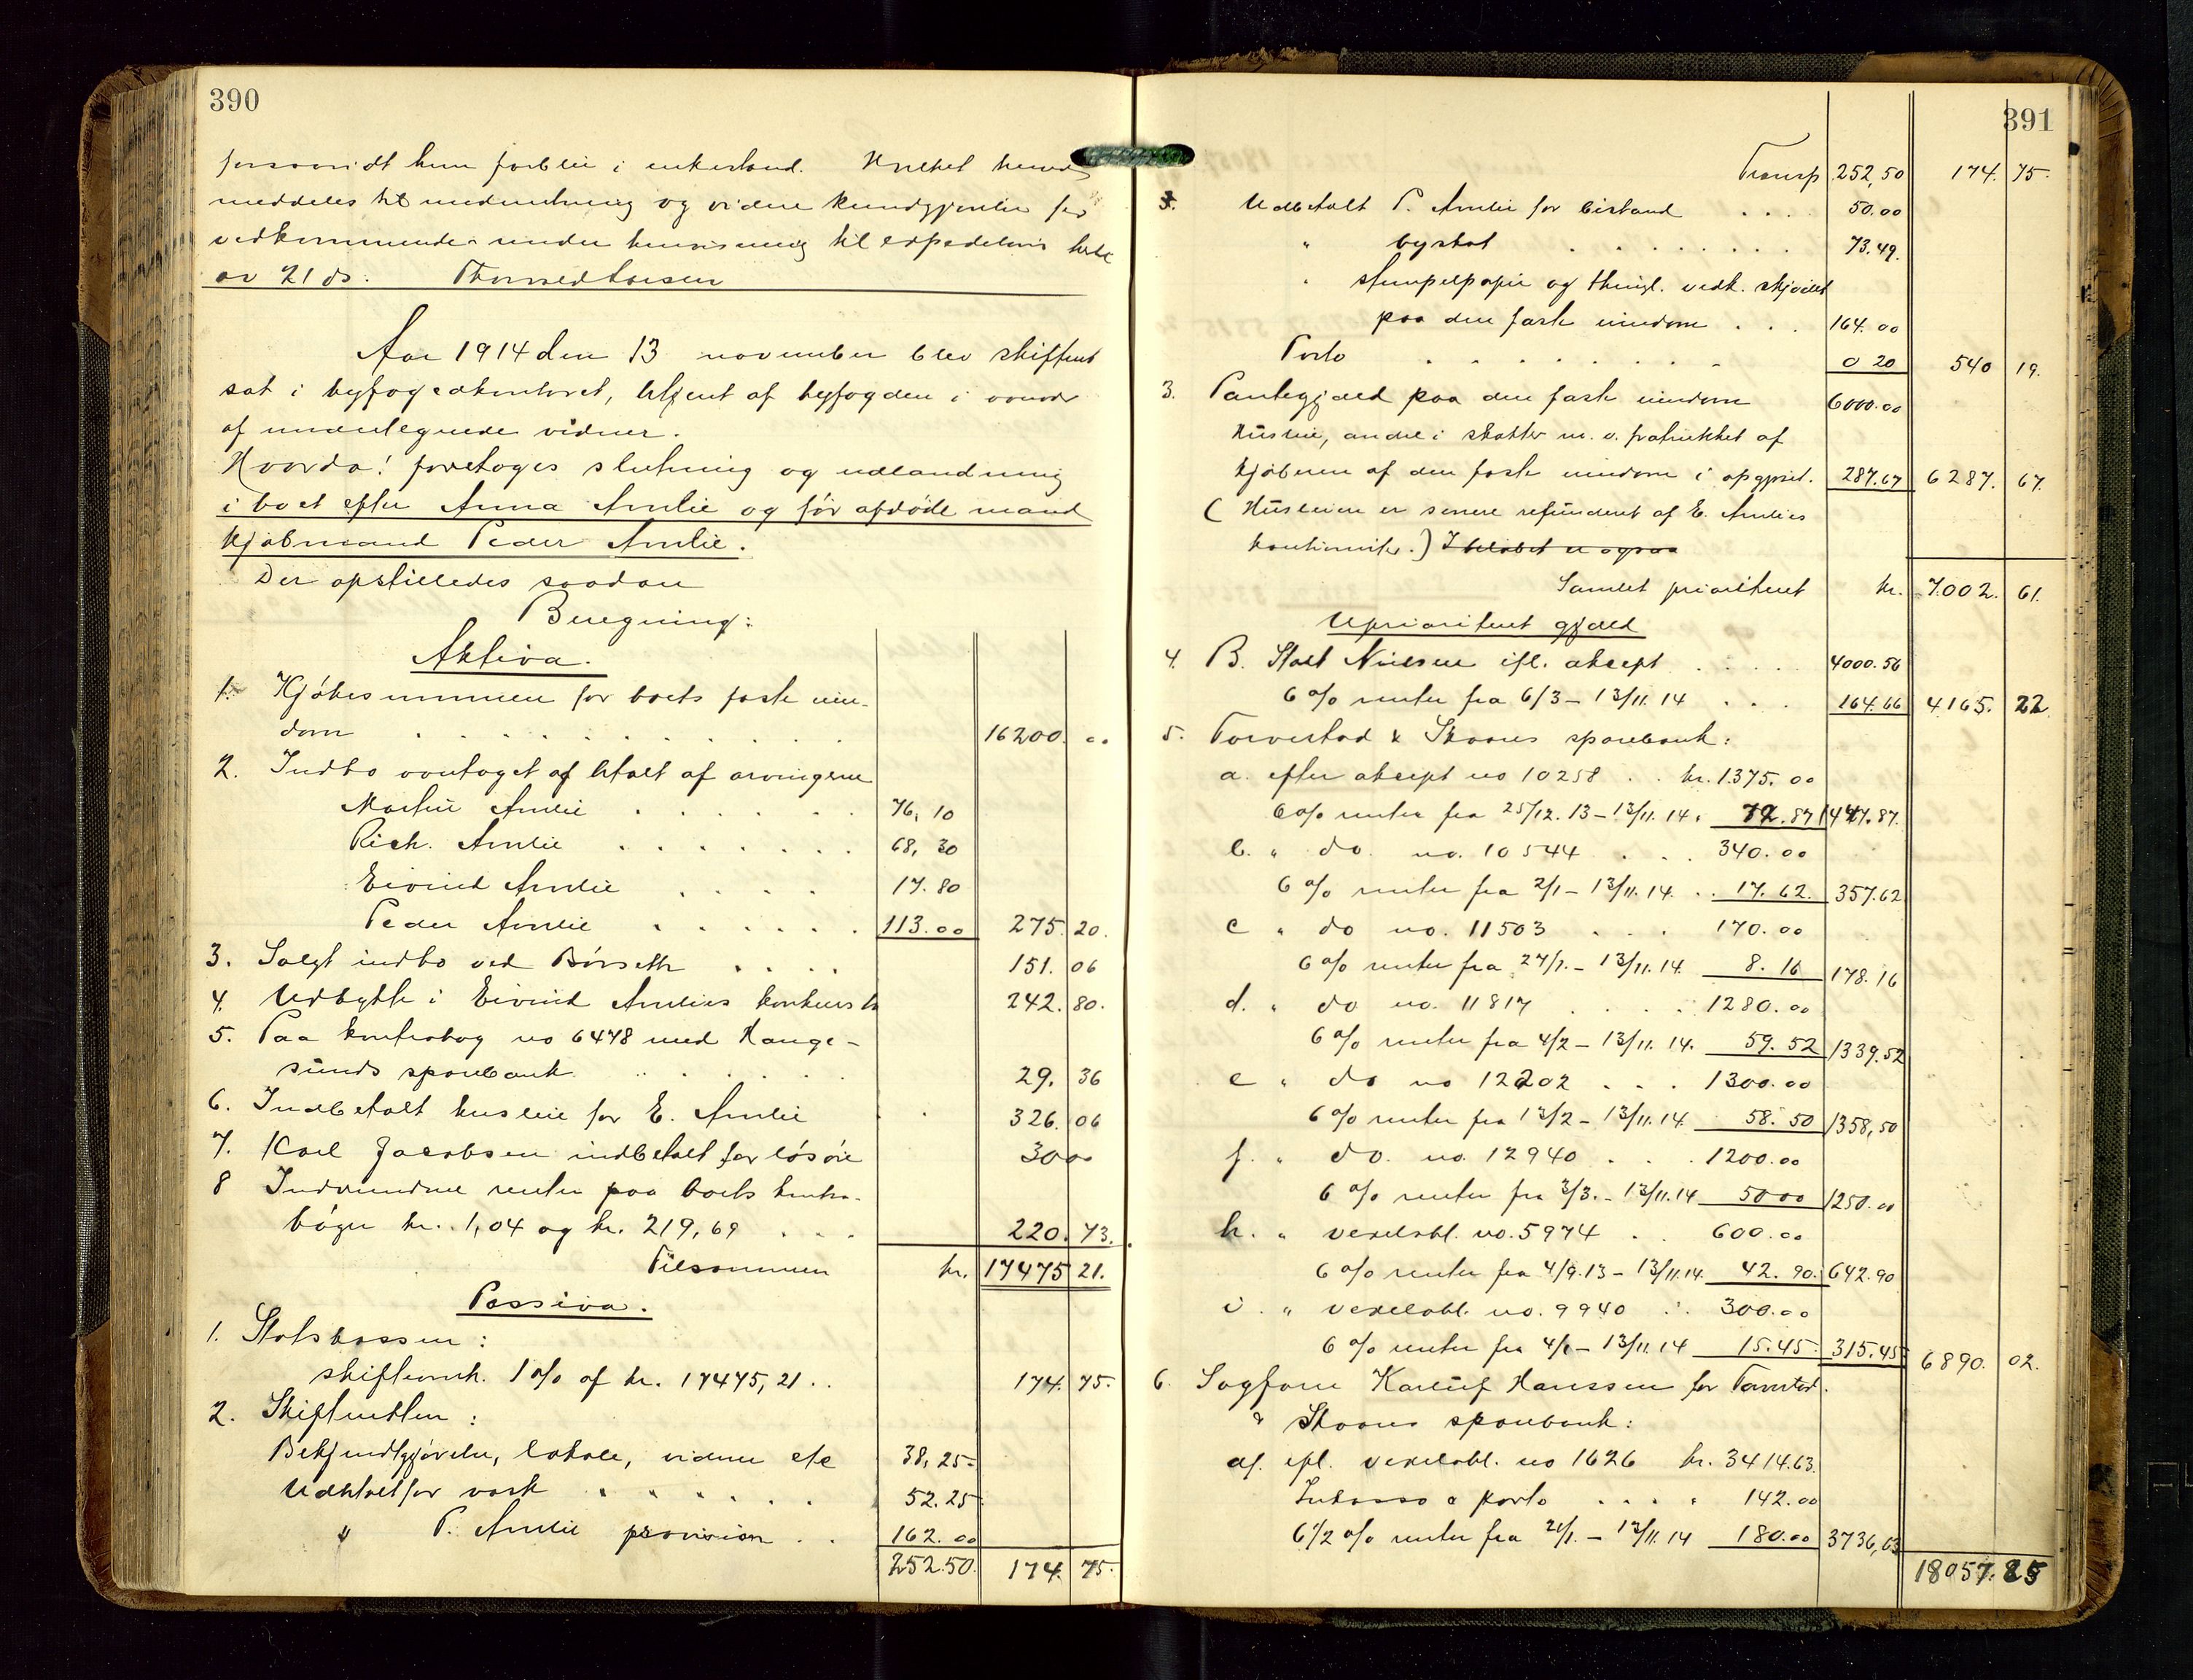 390
forsaavidt hun forblir i enkestand. Hvilket herved
meddeles til underretning og videre kundgjørelse for
vedkommende under henvisning til expeditions
av 21 ds. Thorvedtorsen
Aar 1914 den 13 november blev skifteret
sat i byfogedkontoret, betjent af byfogden i overvær
af undertegnede vidner.
Hvorda! foretoges slutning og udlodning
i boet efter Anna Amlie og før afdøde mand
kjøbmand Peder Amlie.
Der opstilledes saadan
Beregning:
Aktiva.
1. Kjøbesummen for boets faste eien-
dom . . . 16200. 00
2. Indbo overtaget og betalt af arvingerne
Martin Amlie . . . 76,10
Rich. Amlie . . . 68,30
Eivind Amlie . . . 17.80
Peder Amlie . . . 113.00 275 20.
3. Solgt indbo ved Børseth . . . 151. 06
4. Udbytte i Eivind Amlies konkursbo 242. 80.
5. Paa kontrabog no 6478 med Hauge-
sunds sparebank . . . 29. 36
6. Indbetalt husleie for E. Amlie 326. 06
7. Karl Jacobsen indbetalt for løsøre 30 00
8 Indvundne renter paa boets kontra-
bøger kr. 1,04 og kr. 219,69 . . . 220. 73.
Tilsammen kr. 17475 21.
Passiva.
1. Statskassen:
skifteafg. 1 o/o af kr. 17475,21 . . 174. 75.
2. Skifteretten:
Bekjendtgjørelse, lokale, vidner etc 38,25
Udbetalt for vask . . . 52.25
" P. Amlie provision . . 162.00
252.50 174. 75.
391
Transp 252,50 174. 75.
Udbetalt P. Amlie for bistand . . . 50.00
" byskat . . . 73.49.
" stempelpapir og thingl. vedk. skjødet
paa den faste eiendom . . . 164.00
Porto . . . 0 20 540 19.
3. Pantegjæld paa den faste eiendom 6000.00
Husleie, andel i skatter m.v. fratrukket af
kjøberen af den faste eiendom i opgjøret. 287.67 6287. 67.
(Husleien er senere refunderet af E. Amlies
kautionister.) I beløbet er ogsaa
Samlet prioriteret kr. 7002. 61.
Uprioritert gjæld
4. B. Stolt Nielsen ifl. aksept . . . 4000.56
6 o/o renter fra 6/3 - 13/11.14 . . . 164.66 4165. 22
5. Torvestad & Skaares sparebank:
a. efter aksept no 10258 . . kr. 1375.00
6 o/o renter fra 25/12.13 - 13/11.14. 72.87 1447.87.
b. " do. no. 10544 . . . 340.00
6 o/o renter fra 2/1 - 13/11.14. . . 17.62. 357.62
c " do no. 11503 . . . 170.00
6 o/o renter fra 27/1. - 13/11.14. 8.16 178.16
d. " do no. 11817 . . . 1280.00
6 o/o renter fra 4/2 - 13/11.14. 59.52 1339.52
e " do no 12202 . . . 1300.00
6 o/o renter fra 13/2 - 13/11.14 58.50 1358,50
f. " do. no. 12940 . . . 1200.00
6 o/o renter fra 3/3. - 13/11.14 50 00 1250.00
h. " vexelobl. no. 5974 . . 600.00
6 o/o renter fra 4/9.13 - 13/11.14. 42.90. 642.90
i. " vexelobl. no. 9940 . . 300.00
6 o/o renter fra 4/1 - 13/11.14 15.45. 315.45 6890. 02.
6. Sagfører Karluf Hanssen for Torvestad
& Skaares sparebank:
a. ifl. vexelobl. no 1626 kr. 3414.63.
Inkasso & porto . . . 142.00
6 1/2 o/o renter fra 21/1. - 13/11.14 180.00 3736,63
18057.85